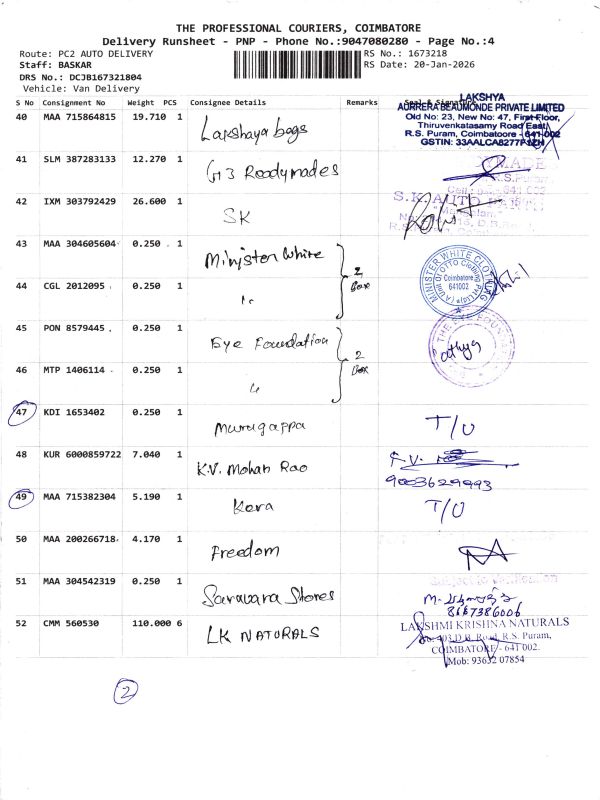 THE PROFESSIONAL COURIERS, COIMBATORE
Delivery Runsheet - PNP - Phone No.:9047080280 - Page No.:4
Route: PC2 AUTO DELIVERY RS No.: 1673218
Staff: BASKAR RS Date: 20-Jan-2026
DRS No.: DCJB167321804
Vehicle: Van Delivery
S No Consignment No Weight PCS Consignee Details Remarks Seal & Signature
LAKSHYA
AURRERA BEAUMONDE PRIVATE LIMITED
Old No: 23, New No: 47, First Floor,
Thiruvenkatasamy Road East,
R.S. Puram, Coimbatoore - 641 002
GSTIN: 33AALCA8277P1ZH
40 MAA 715864815 19.710 1 Lakshaya bags
41 SLM 387283133 12.270 1 G3 Readymades
42 IXM 303792429 26.600 1 SK
S.K. AUTO PARTS
43 MAA 304605604 0.250 1 Minister White 2 Box
44 CGL 2012095 0.250 1 "
MINISTER WHITE CLOTHING
(A Unit of OTTO Clothing Pvt Ltd)
Coimbatore
641002
45 PON 8579445 0.250 1 Eye Foundation 2 Box
46 MTP 1406114 0.250 1 "
THE EYE FOUNDATION
47 KDI 1653402 0.250 1 Murugappa T/O
48 KUR 6000859722 7.040 1 K.V. Mohan Rao
9003629993
49 MAA 715382304 5.190 1 Kora T/O
50 MAA 200266718 4.170 1 Freedom
51 MAA 304542319 0.250 1 Saravara Stores
Subject to Verification
8667386006
52 CMM 560530 110.000 6 LK NATURALS
LAKSHMI KRISHNA NATURALS
No. 403 D.B. Road, R.S. Puram,
COIMBATORE - 641 002.
Mob: 93632 07854
2